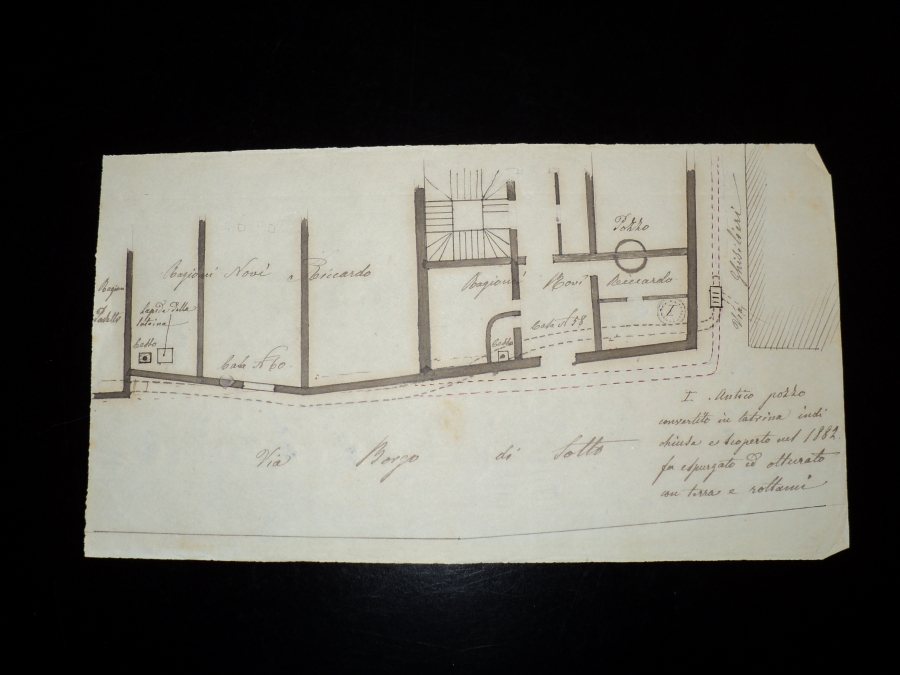 Pozzo
Via Ghisolieri
Ragioni Novi Riccardo
Ragioni Novi Riccardo
Ragioni
Lapide della
latrina
Cesso
I
Casa N 58
Cesso
Casa N 60
I. Antico pozzo
convertito in latrina indi
chiusa e scoperto nel 1882
fu espurgato ed otturato
con terra e rottami
Via Borgo di Sotto